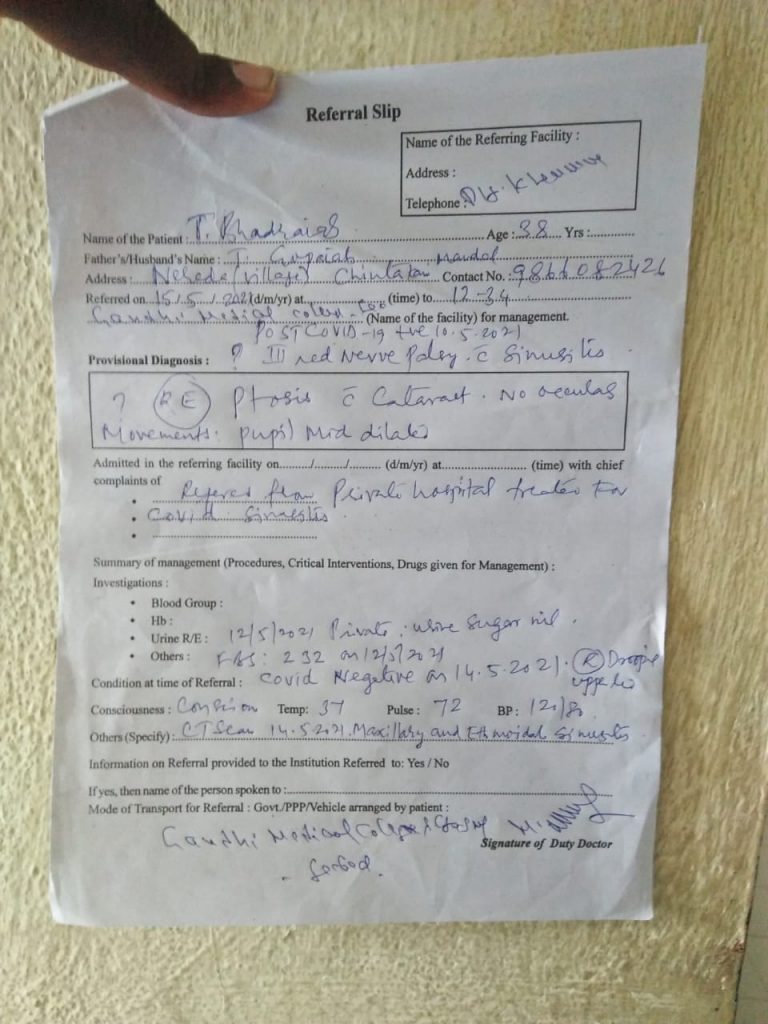 Referral Slip
Name of the Referring Facility :
Address :
Telephone :
Name of the Patient : T. Bhadraiah Age : 38 Yrs :
Father's/Husband's Name : T. Gopaiah Mandal
Address : Nereda (village) Chintakan Contact No. : 9866082426
Referred on 15/5/2021 (d/m/yr) at (time) to 12-34
Gandhi Medical (Name of the facility) for management.
POST COVID-19 +ve 10.5.2021
Provisional Diagnosis : ? III red Nerve Palsy. c̄ Sinusitis
? RE Ptosis c̄ Cataract. No occular
Movements. pupil Mid dilated
Admitted in the referring facility on........./........./......... (d/m/yr) at......................... (time) with chief
complaints of
• Refered from Private hospital treated for
• Covid Sinusitis
•
Summary of management (Procedures, Critical Interventions, Drugs given for Management) :
Investigations :
• Blood Group :
• Hb :
• Urine R/E : 12/5/2021 Private. urine Sugar nil.
• Others : FBS: 232 on 12/5/2021
Condition at time of Referral : Covid Negative on 14.5.2021. (R) Droopi
upper lid
Consciousness : Temp: 37 Pulse : 72 BP : 120/80.
Others (Specify) : CT Scan 14.5.2021. Maxillary and Ethmoidal Sinusitis
Information on Referral provided to the Institution Referred to: Yes / No
If yes, then name of the person spoken to :
Mode of Transport for Referral : Govt./PPP/Vehicle arranged by patient :
Gandhi Medical College
Signature of Duty Doctor